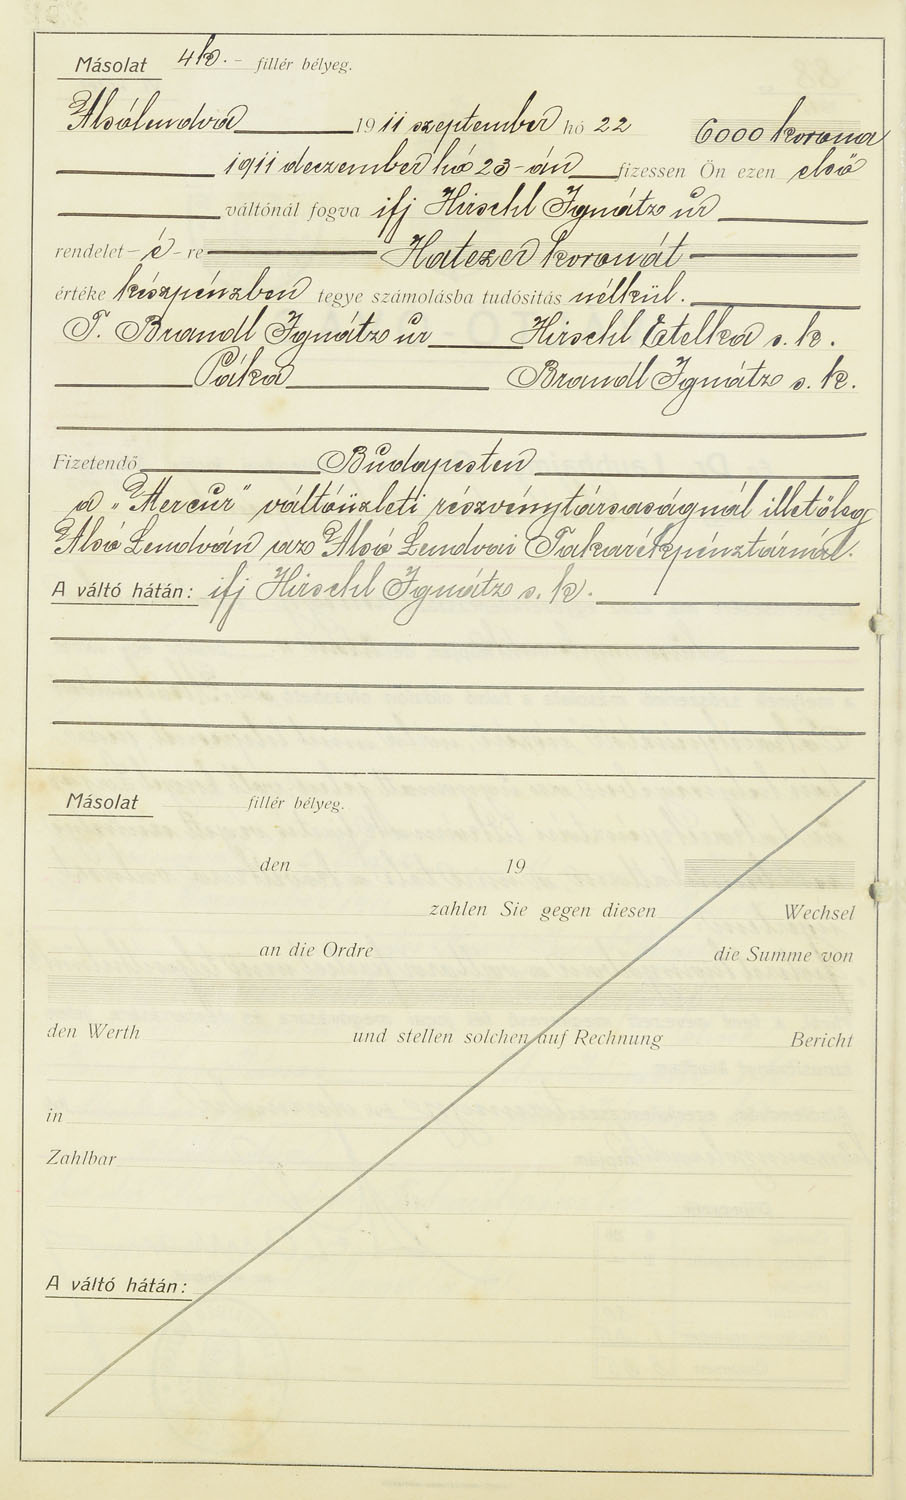 Másolat 4 k. - fillér bélyeg.
Alsólendva 1911 szeptember hó 22 6000 korona
1911 deczember hó 23-án fizessen Ön ezen első
váltónál fogva ifj Hirschl Ignátz úr
rendelet - é - re Hatezer koronát
értéke készpénzben tegye számolásba tudósítás nélkül.
T. Brandl Ignátz úr Hirschl Etelka s. k.
Páka Brandl Ignátz s. k.
Fizetendő Budapesten
a „Mercur" váltóüzleti részvénytársaságnál illetőleg
Alsó Lendván az Alsó Lendvai Takarékpénztárnál.
A váltó hátán: ifj Hirschl Ignátz s. k.
Másolat fillér bélyeg.
den 19
zahlen Sie gegen diesen Wechsel
an die Ordre die Summe von
den Werth und stellen solchen auf Rechnung Bericht
in
Zahlbar
A váltó hátán: